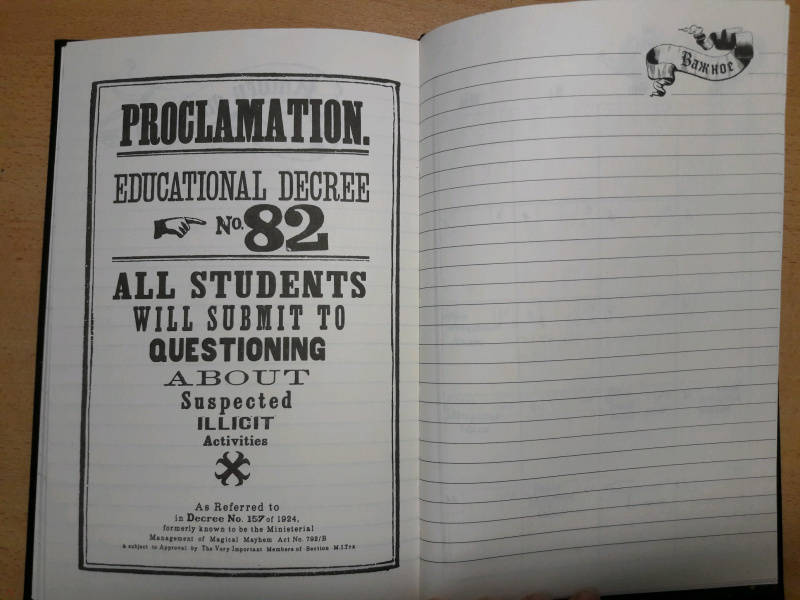 PROCLAMATION.
EDUCATIONAL DECREE
No. 82
ALL STUDENTS
WILL SUBMIT TO
QUESTIONING
ABOUT
Suspected
ILLICIT
Activities
As Referred to
in Decree No. 157 of 1924,
formerly known to be the Ministerial
Management of Magical Mayhem Act No. 792/B
a subject to Approval by The Very Important Members of Section M.I.T
Важное